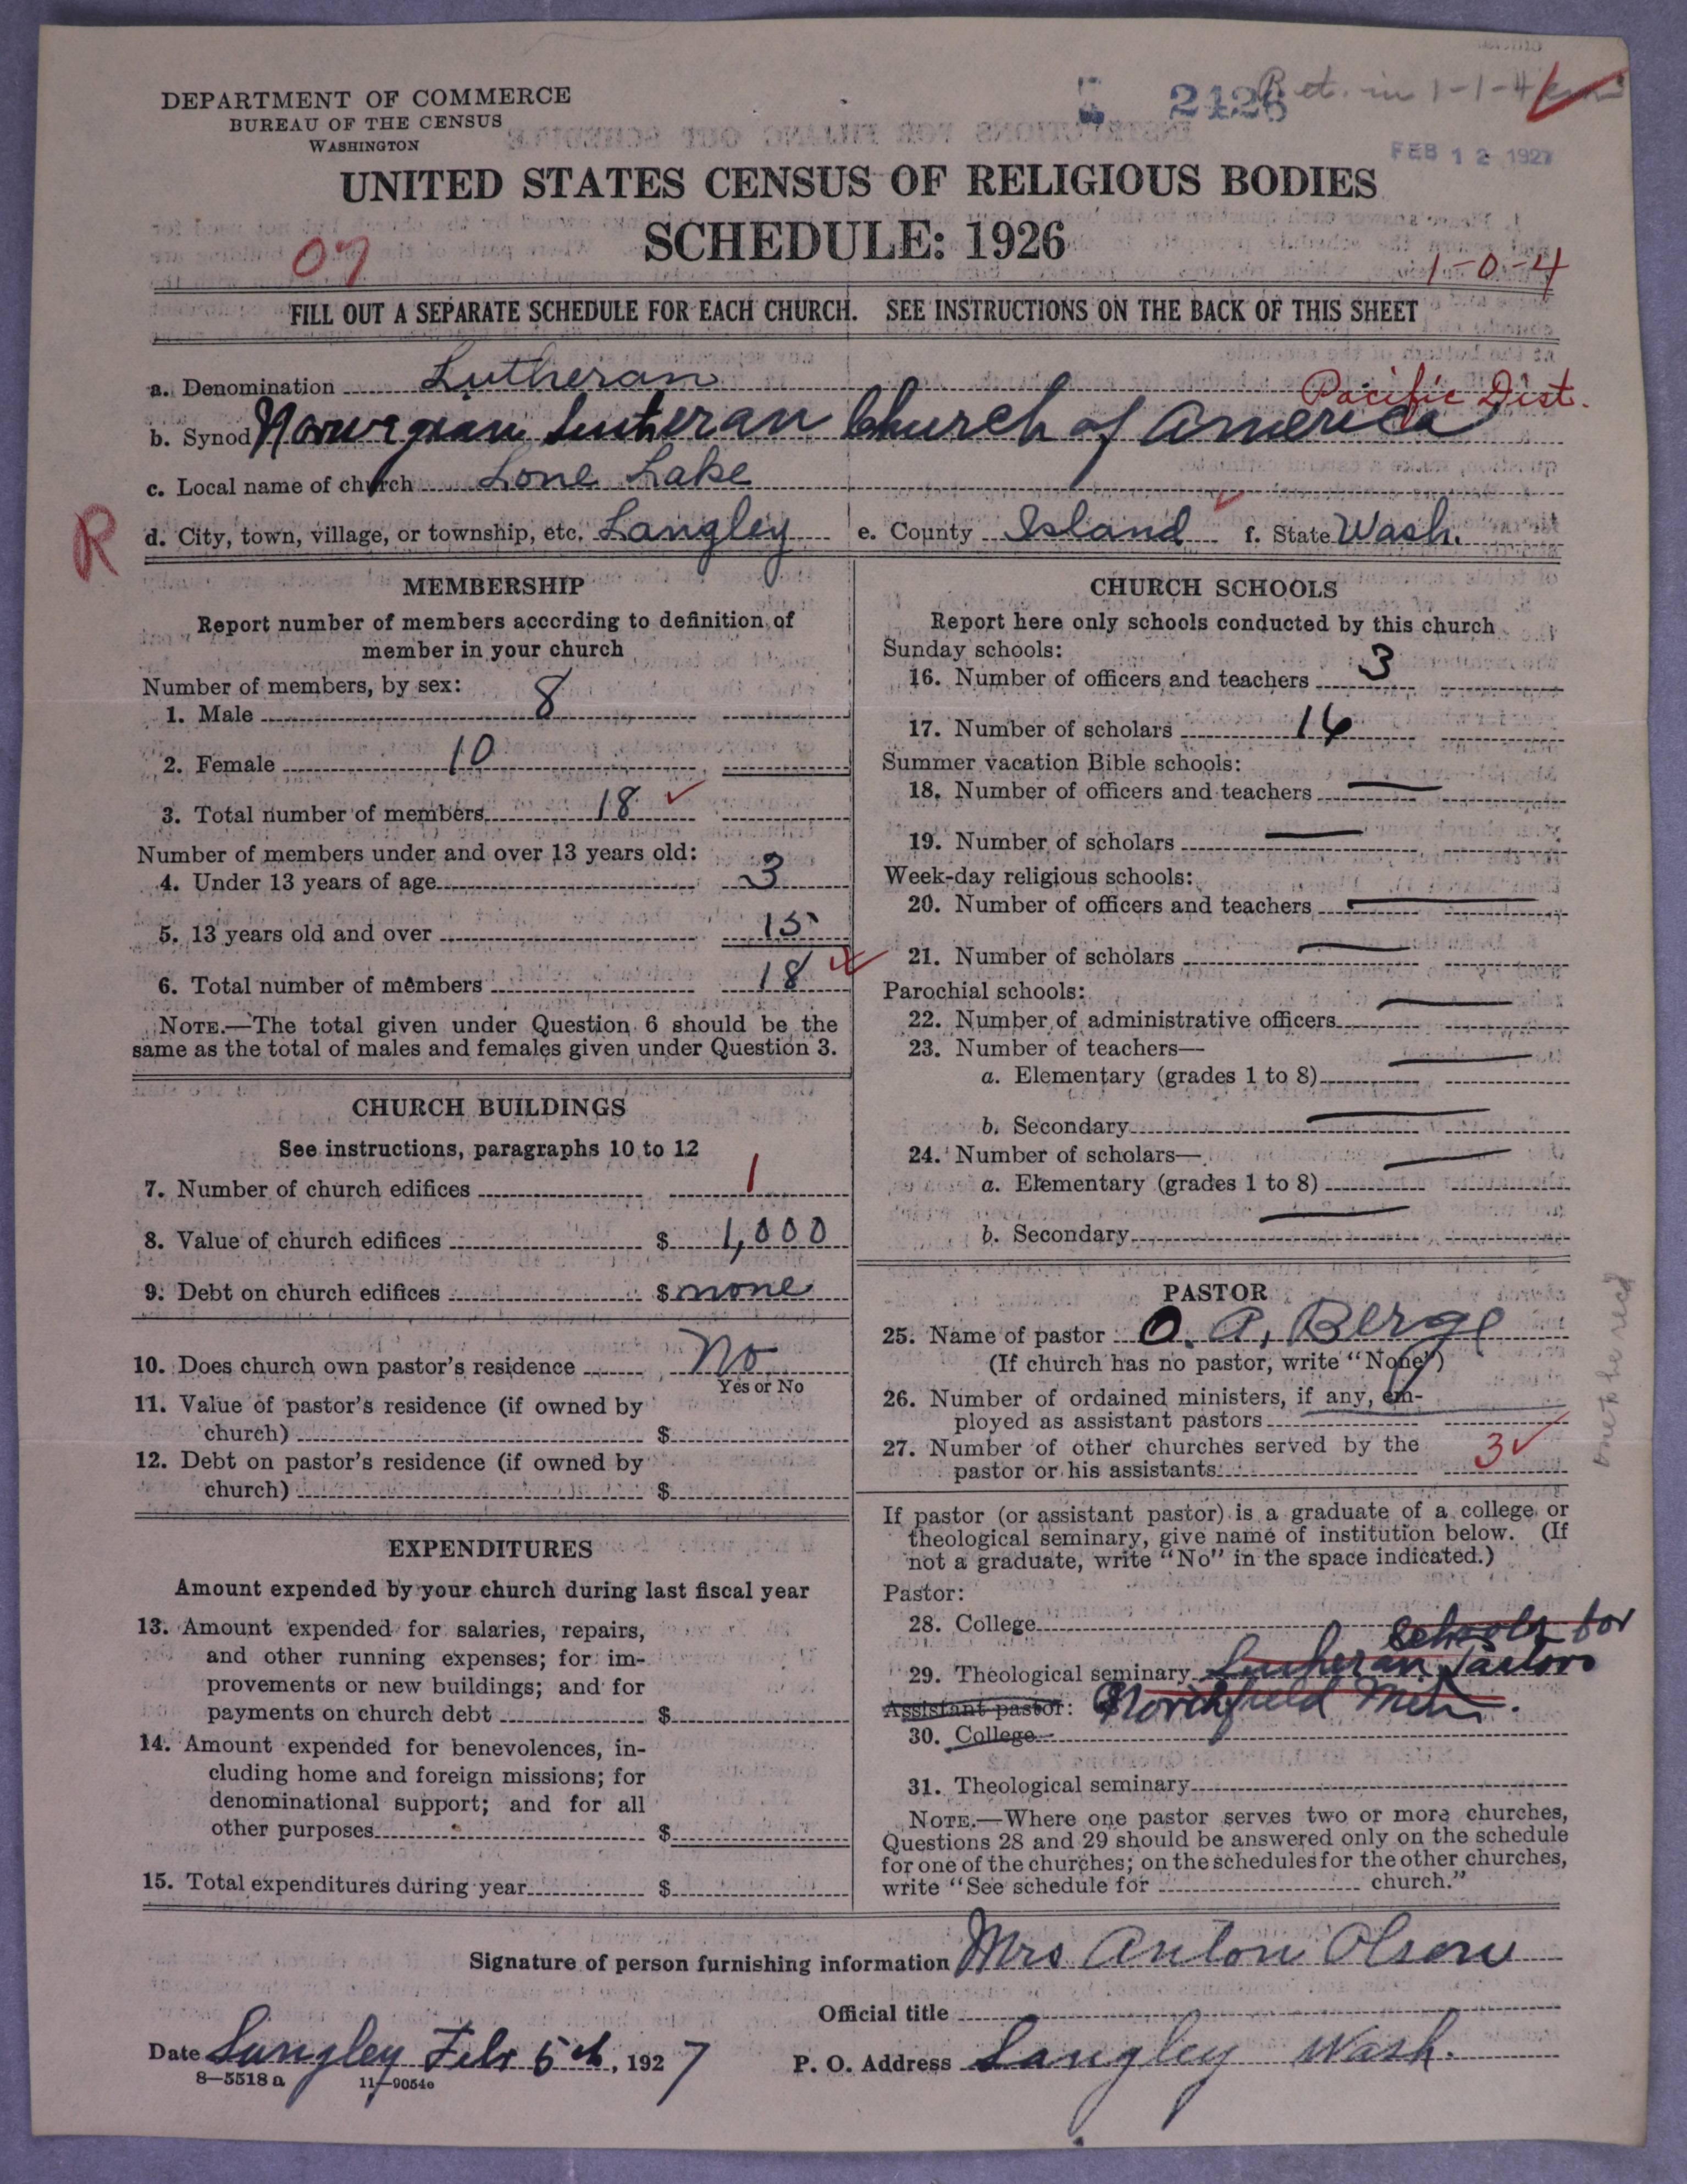 DEPARTMENT OF COMMERCE
BUREAU OF THE CENSUS
WASHINGTON
2426
Ret. in 1-1-4
FEB 12 1927
UNITED STATES CENSUS OF RELIGIOUS BODIES
SCHEDULE: 1926
07
1-0-4
FILL OUT A SEPARATE SCHEDULE FOR EACH CHURCH. SEE INSTRUCTIONS ON THE BACK OF THIS SHEET
a. Denomination Lutheran
Pacific Dist.
b. Synod Norwegian Lutheran Church of America
c. Local name of church Lone Lake
R
d. City, town, village, or township, etc. Langley e. County Island f. State Wash.
MEMBERSHIP
Report number of members according to definition of
member in your church
Number of members, by sex:
1. Male 8
2. Female 10
3. Total number of members 18
Number of members under and over 13 years old:
4. Under 13 years of age 3
5. 13 years old and over 15
6. Total number of members 18
NOTE.—The total given under Question 6 should be the
same as the total of males and females given under Question 3.
CHURCH BUILDINGS
See instructions, paragraphs 10 to 12
7. Number of church edifices 1
8. Value of church edifices $ 1,000
9. Debt on church edifices $ none
10. Does church own pastor's residence No
Yes or No
11. Value of pastor's residence (if owned by
church) $
12. Debt on pastor's residence (if owned by
church) $
EXPENDITURES
Amount expended by your church during last fiscal year
13. Amount expended for salaries, repairs,
and other running expenses; for im-
provements or new buildings; and for
payments on church debt $
14. Amount expended for benevolences, in-
cluding home and foreign missions; for
denominational support; and for all
other purposes $
15. Total expenditures during year $
CHURCH SCHOOLS
Report here only schools conducted by this church
Sunday schools:
16. Number of officers and teachers 3
17. Number of scholars 16
Summer vacation Bible schools:
18. Number of officers and teachers —
19. Number of scholars —
Week-day religious schools:
20. Number of officers and teachers —
21. Number of scholars —
Parochial schools:
22. Number of administrative officers —
23. Number of teachers—
a. Elementary (grades 1 to 8) —
b. Secondary —
24. Number of scholars—
a. Elementary (grades 1 to 8) —
b. Secondary —
PASTOR
25. Name of pastor O. A. Berge
(If church has no pastor, write "None")
26. Number of ordained ministers, if any, em-
ployed as assistant pastors
27. Number of other churches served by the
pastor or his assistants 3
If pastor (or assistant pastor) is a graduate of a college or
theological seminary, give name of institution below. (If
not a graduate, write "No" in the space indicated.)
Pastor:
28. College
Schools for
29. Theological seminary Lutheran Pastors
Assistant pastor: Northfield Min.
30. College
31. Theological seminary
NOTE.—Where one pastor serves two or more churches,
Questions 28 and 29 should be answered only on the schedule
for one of the churches; on the schedules for the other churches,
write "See schedule for church."
Signature of person furnishing information Mrs Anton Olson
Official title
Date Langley Feb 5th, 1927 P. O. Address Langley Wash.
8—5518 a 11—9054